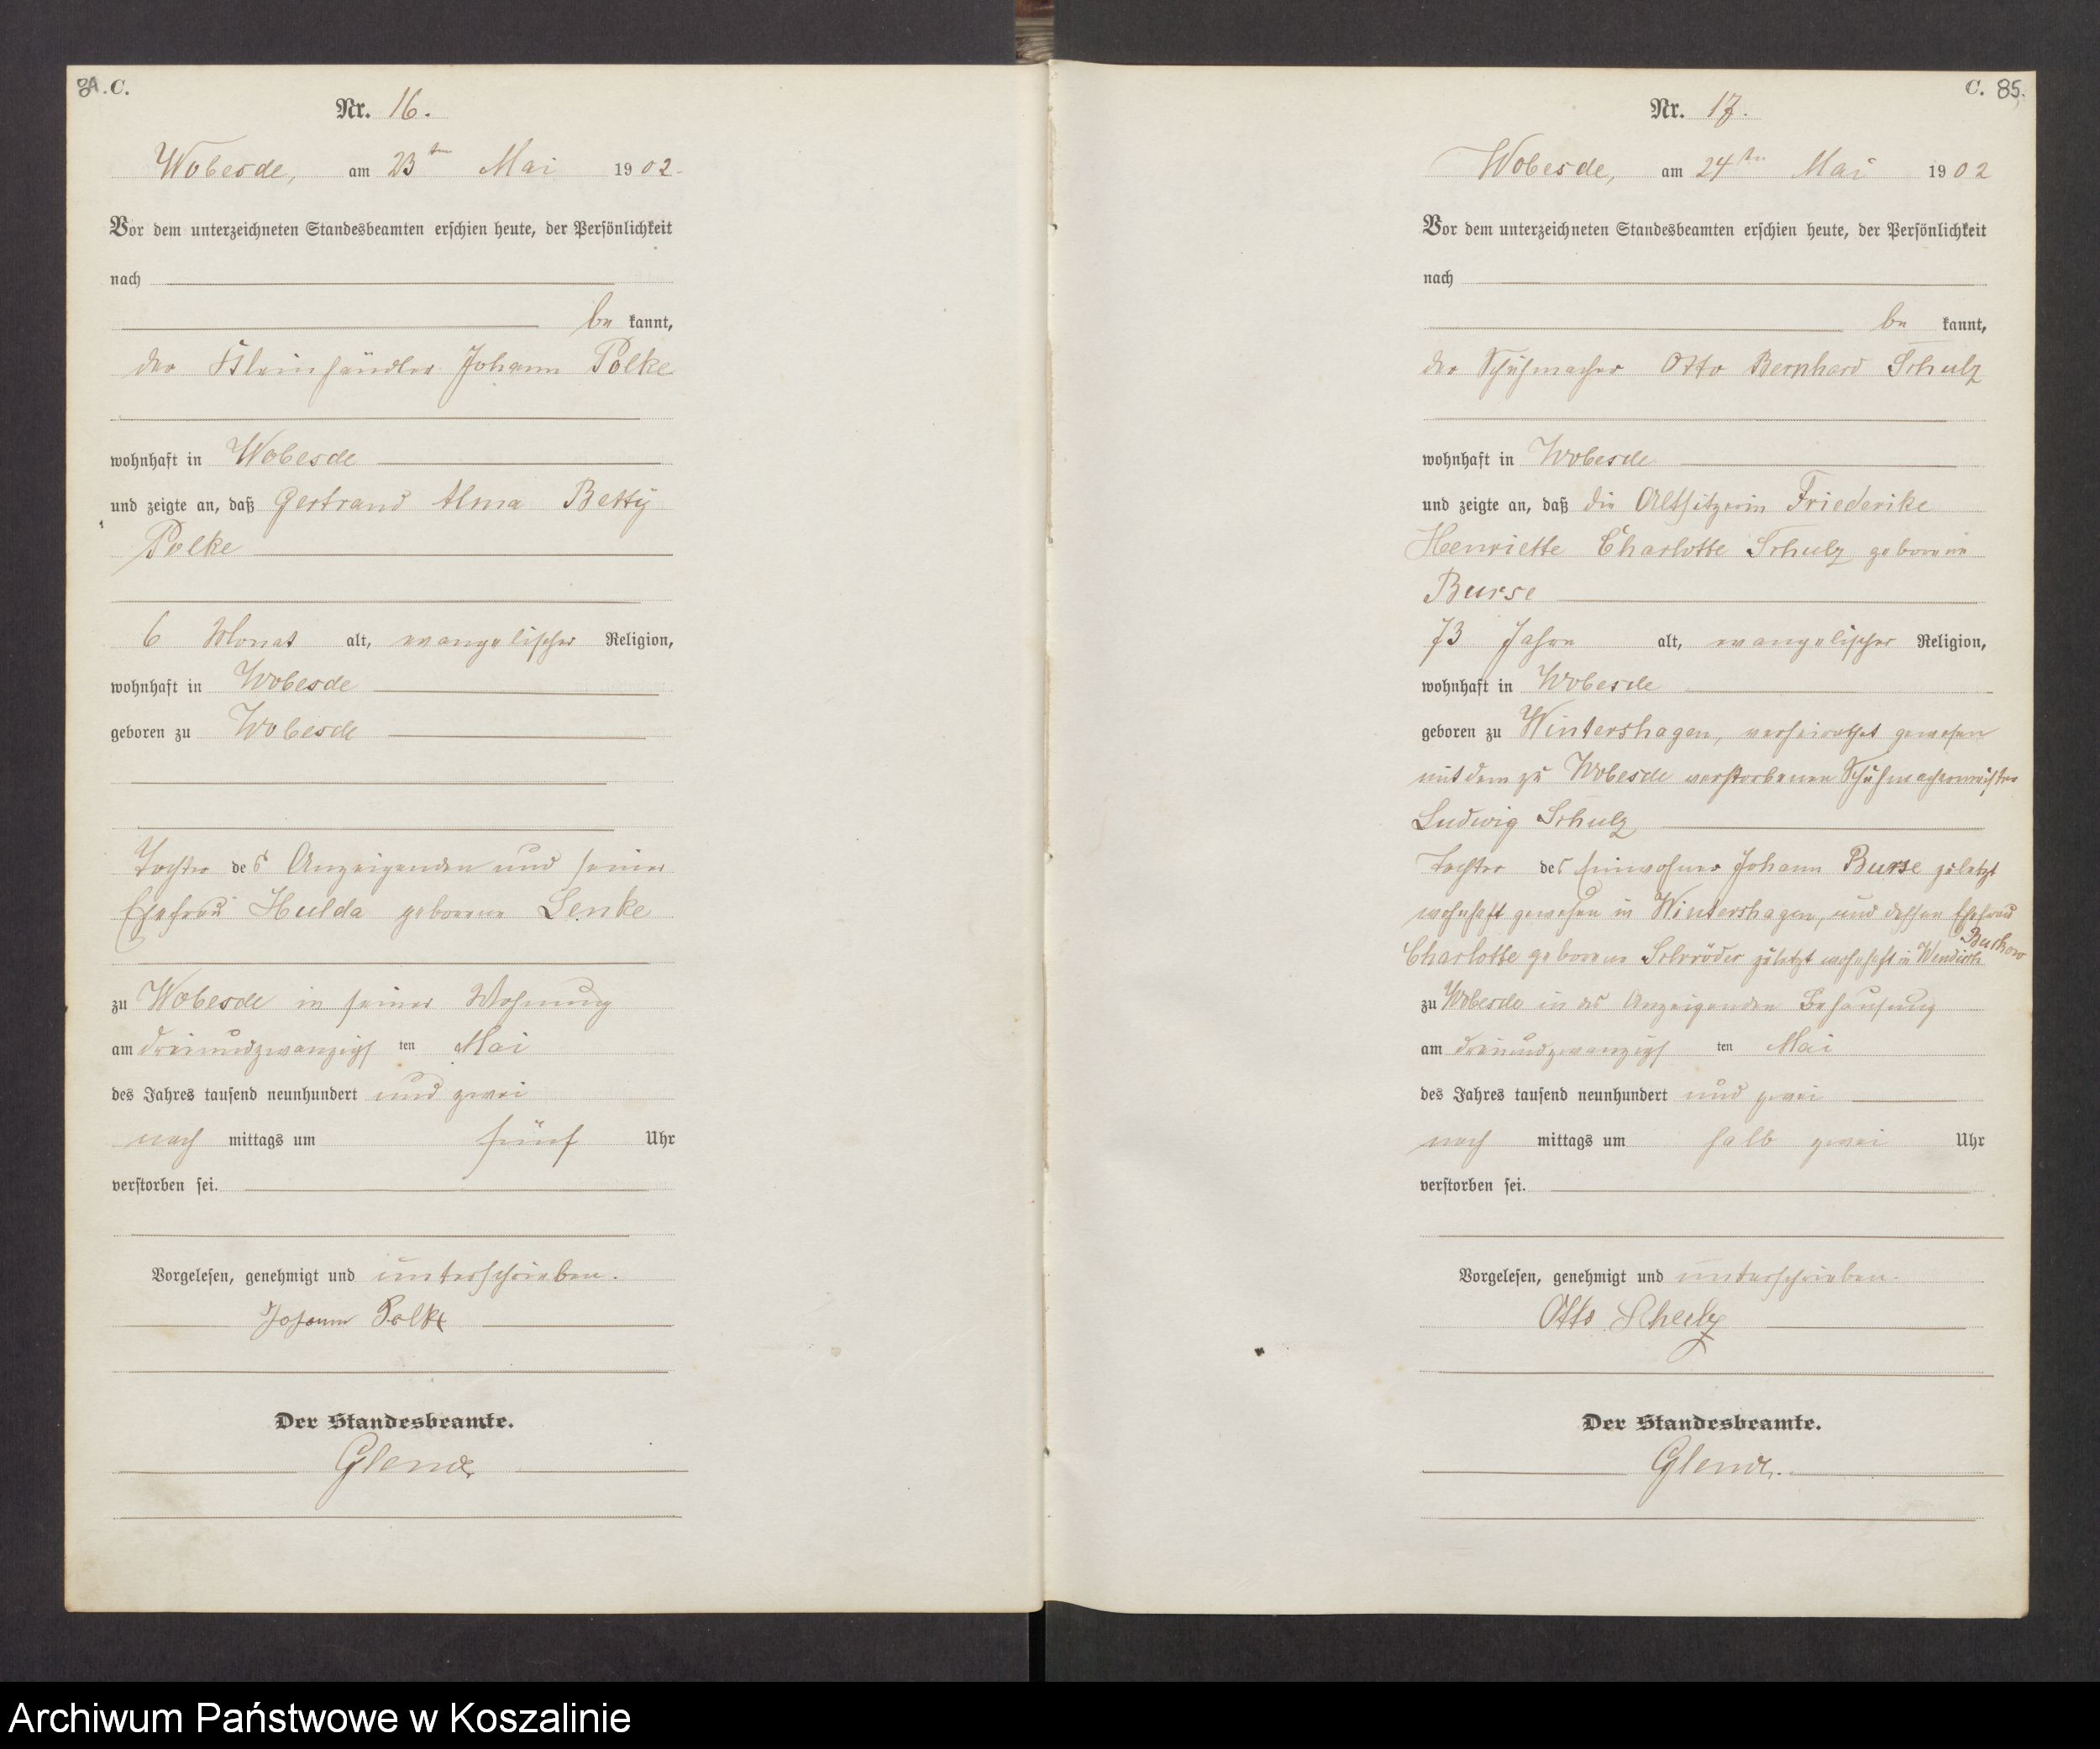 84. C.
Nr. 16.
Wobesde, am 23ten Mai 1902.
Vor dem unterzeichneten Standesbeamten erschien heute, der Persönlichkeit
nach
be kannt,
der Kleinhändler Johann Polke
wohnhaft in Wobesde
und zeigte an, daß Gertraud Alma Betty
Polke
6 Monat alt, evangelischer Religion,
wohnhaft in Wobesde
geboren zu Wobesde
Tochter des Anzeigenden und seiner
Ehefrau Hulda geborene Lenke
zu Wobesde in seiner Wohnung
am dreiundzwanzigsten Mai
des Jahres tausend neunhundert und zwei
nach mittags um fünf Uhr
verstorben sei.
Vorgelesen, genehmigt und unterschrieben.
Johann Polke
Der Standesbeamte.
C. 85.
Nr. 17.
Wobesde, am 24ten Mai 1902
Vor dem unterzeichneten Standesbeamten erschien heute, der Persönlichkeit
nach
be kannt,
der Schuhmacher Otto Bernhard Schulz
wohnhaft in Wobesde
und zeigte an, daß die Altsitzerin Friederike
Henriette Charlotte Schulz geborene
Burse
73 Jahre alt, evangelischer Religion,
wohnhaft in Wobesde
geboren zu Wintershagen, verheirathet gewesen
mit dem zu Wobesde verstorbenen Schuhmachermeister
Ludwig Schulz
Tochter des Einwohner Johann Burse zuletzt
wohnhaft gewesen in Wintershagen, und dessen Ehefrau
Charlotte geborene Schröder zuletzt wohnhaft in Wendisch Buckow
zu Wobesde in des Anzeigenden Behausung
am dreiundzwanzigsten Mai
des Jahres tausend neunhundert und zwei
nach mittags um halb zwei Uhr
verstorben sei.
Vorgelesen, genehmigt und unterschrieben.
Otto Schulz
Der Standesbeamte.
Archiwum Państwowe w Koszalinie